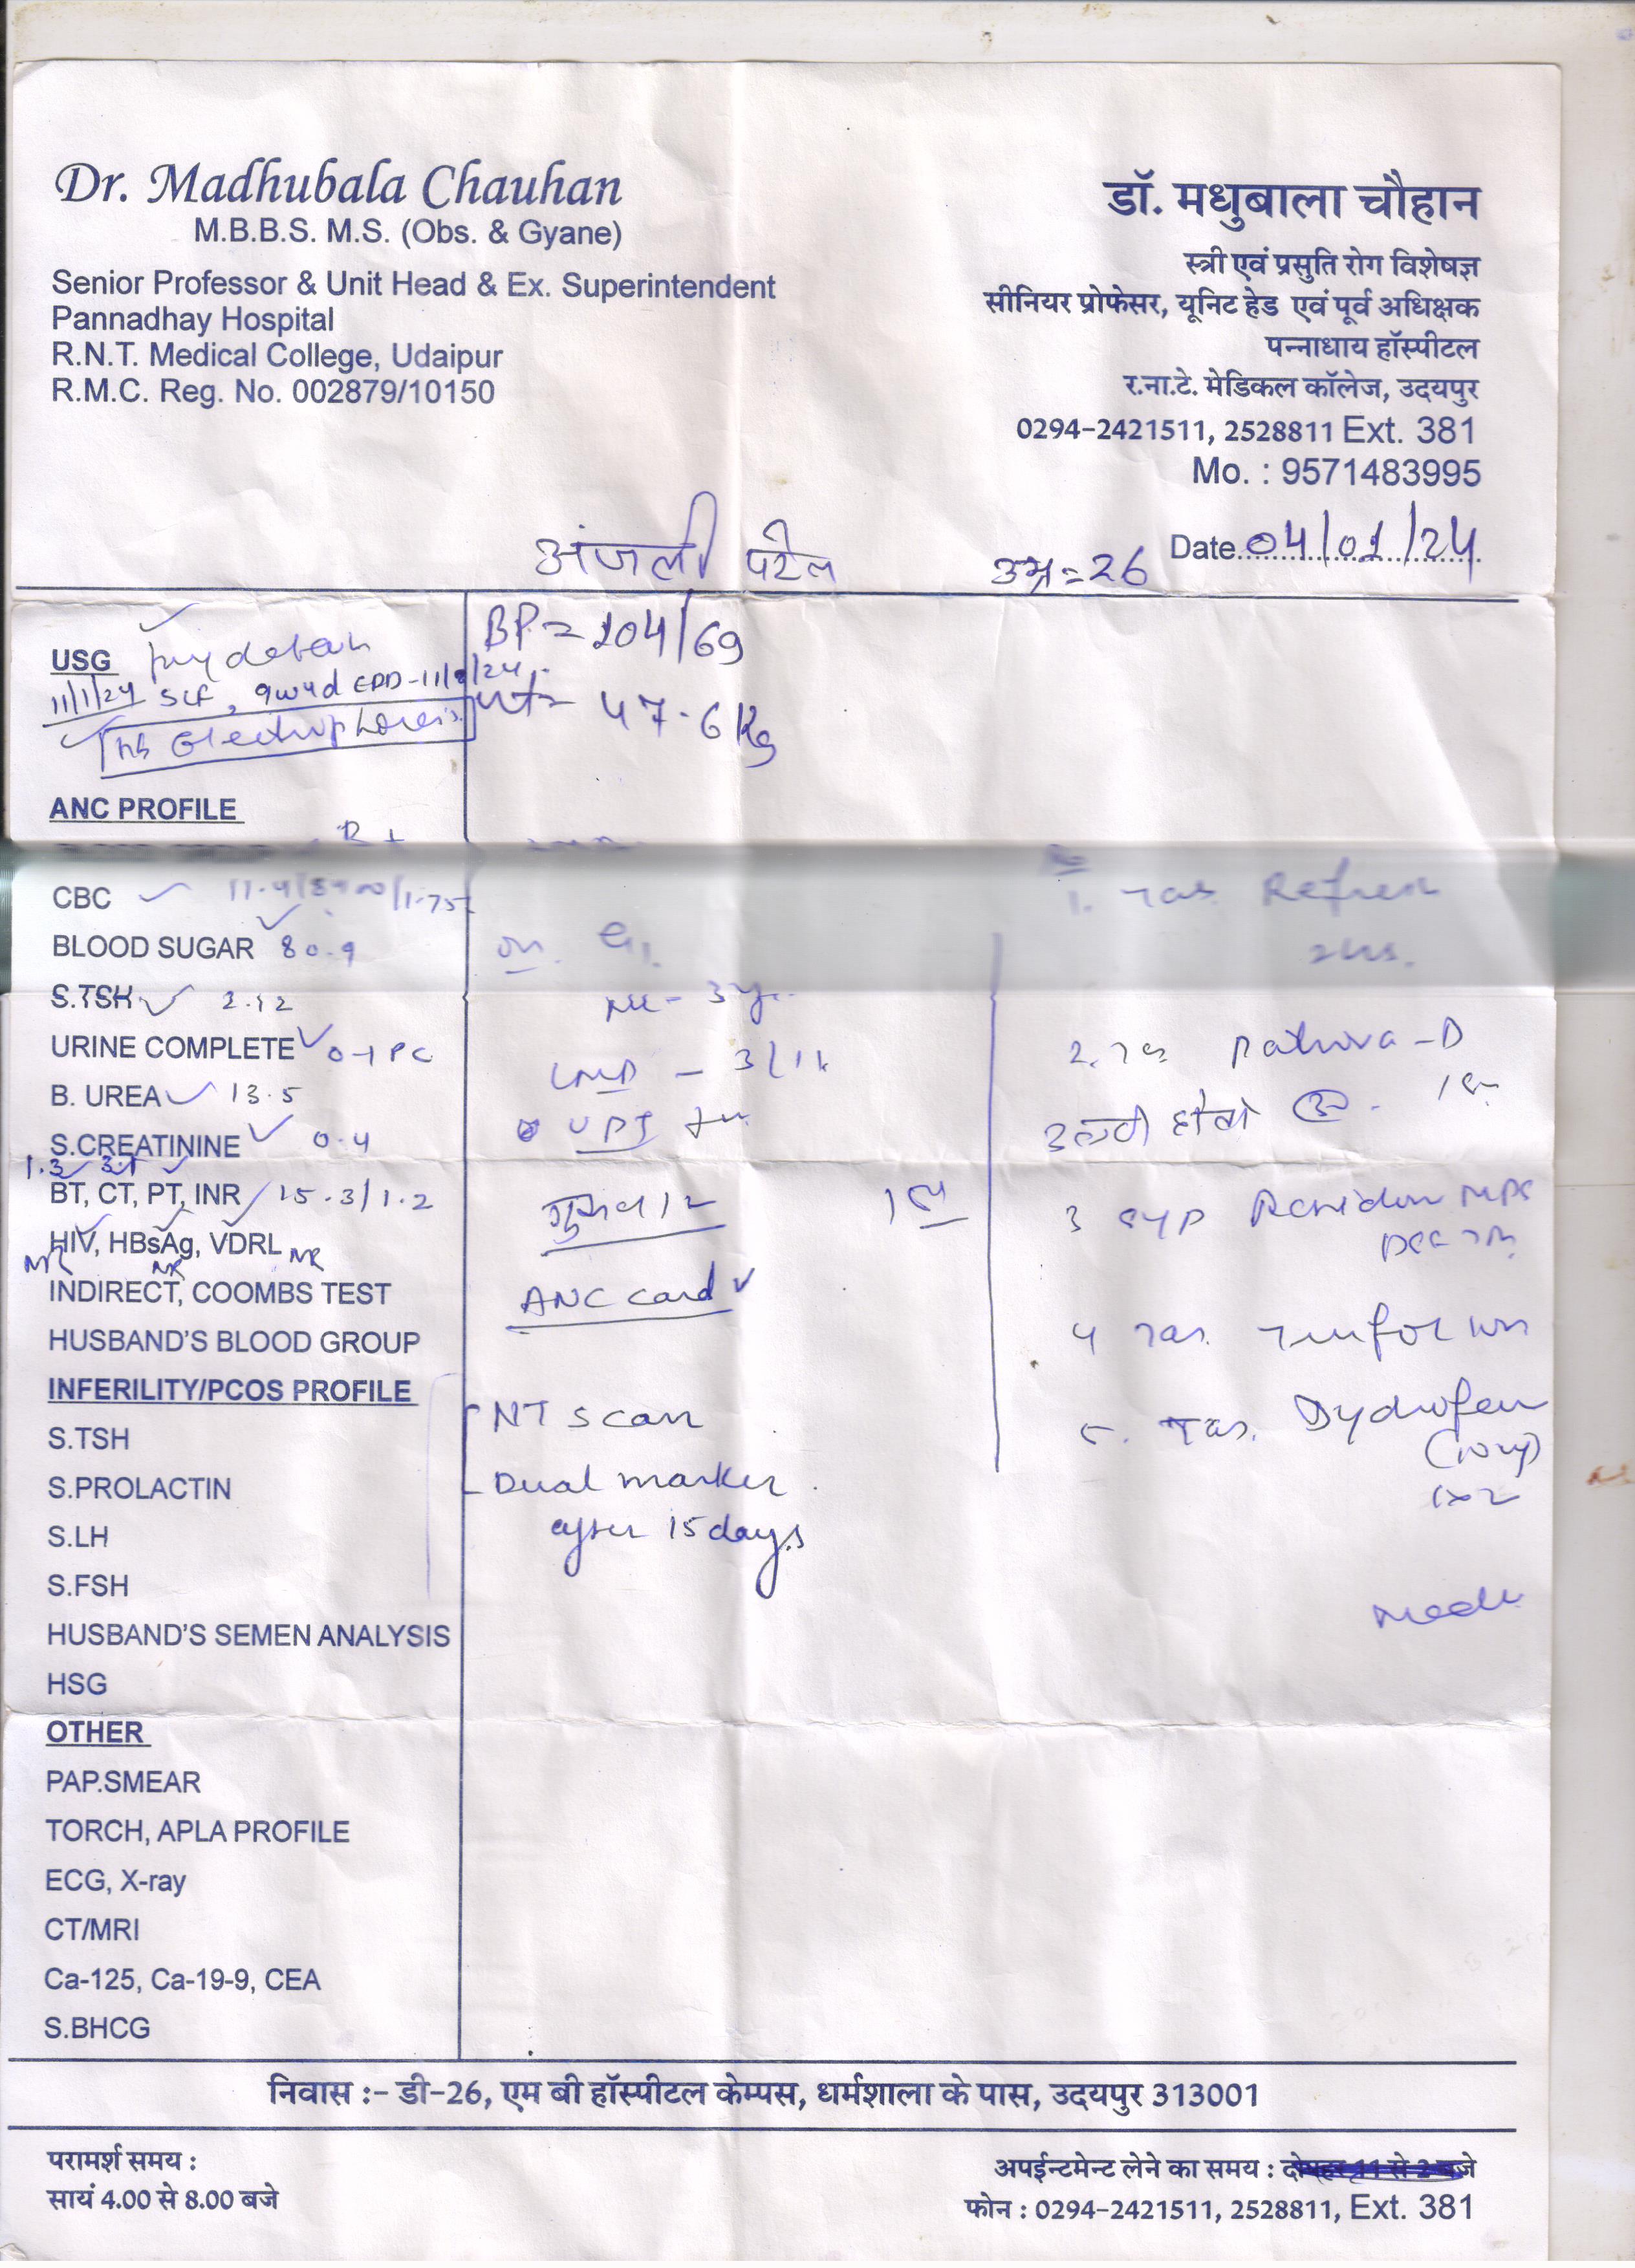 Dr. Madhubala Chauhan
M.B.B.S. M.S. (Obs. & Gyane)
Senior Professor & Unit Head & Ex. Superintendent
Pannadhay Hospital
R.N.T. Medical College, Udaipur
R.M.C. Reg. No. 002879/10150
डॉ. मधुबाला चौहान
स्त्री एवं प्रसुति रोग विशेषज्ञ
सीनियर प्रोफेसर, यूनिट हेड एवं पूर्व अधिक्षक
पन्नाधाय हॉस्पीटल
र.ना.टे. मेडिकल कॉलेज, उदयपुर
0294-2421511, 2528811 Ext. 381
Mo. : 9571483995
Date 04/01/24
अंजली पटेल
उम्र = 26
USG
11/1/24 SLF, 9w4d EDD-11/8/24
Hb Electrophoresis
BP = 104/69
wt = 47.6 Kg
ANC PROFILE
B +
CBC 11.4
BLOOD SUGAR 80.9
S.TSH 2.12
URINE COMPLETE 0-1 PC
B. UREA 13.5
S.CREATININE 0.4
BT, CT, PT, INR 15.3/1.2
HIV, HBsAg, VDRL
NR NR NR
INDIRECT, COOMBS TEST
HUSBAND'S BLOOD GROUP
INFERILITY/PCOS PROFILE
S.TSH
S.PROLACTIN
S.LH
S.FSH
HUSBAND'S SEMEN ANALYSIS
HSG
OTHER
PAP.SMEAR
TORCH, APLA PROFILE
ECG, X-ray
CT/MRI
Ca-125, Ca-19-9, CEA
S.BHCG
G1
ML - 3 yr
LMP - 3/11
UPT
ANC card
NT scan
Dual marker
after 15 days
1. Tab.
2. Tab
उल्टी हो तो
3 syp
4 Tab.
5. Tab. Dydrofem
(10mg)
1x2
निवास :- डी-26, एम बी हॉस्पीटल केम्पस, धर्मशाला के पास, उदयपुर 313001
परामर्श समय :
सायं 4.00 से 8.00 बजे
अपईन्टमेन्ट लेने का समय : दोपहर 11 से 2 बजे
फोन : 0294-2421511, 2528811, Ext. 381